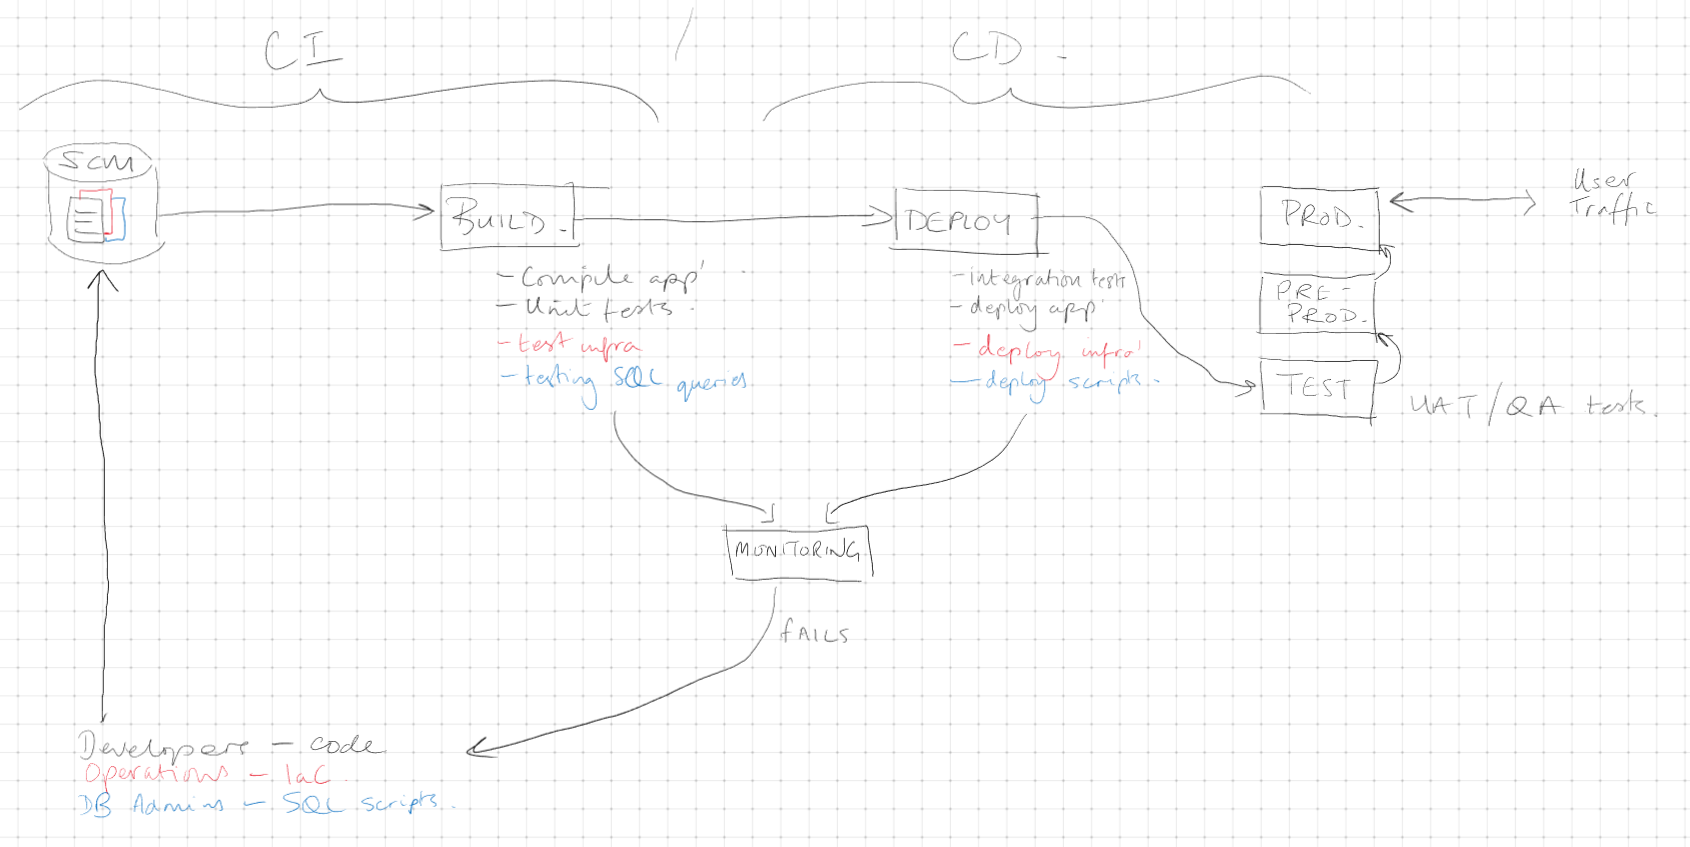 CI / CD -
SCM
BUILD.
- Compile app'
- Unit tests.
- test infra
- testing SQL queries
DEPLOY
- integration tests
- deploy app'
- deploy infra'
- deploy scripts.
PROD.
User
Traffic
PRE-
PROD.
TEST
UAT/QA tests.
MONITORING
FAILS
Developers - code
Operations - IaC.
DB Admins - SQL scripts.